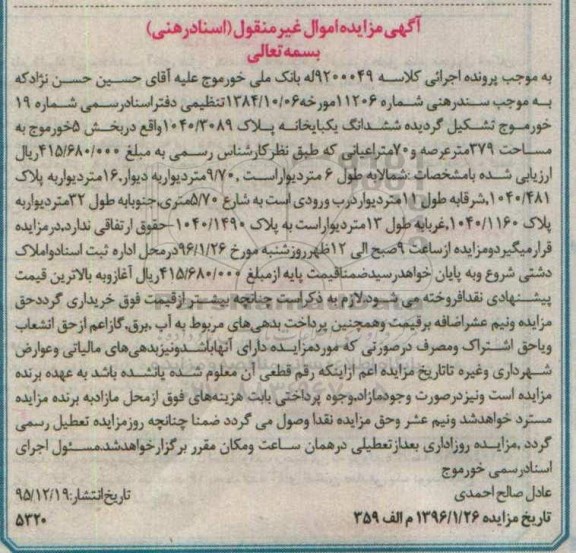 آگهی مزایده اموال غیر منقول (اسناد رهنی)
بسمه تعالی
به موجب پرونده اجرائی کلاسه ۹۲۰۰۰۴۹له بانک ملی خورموج علیه آقای حسین حسن نژادکه
به موجب سندرهنی شماره ۱۱۲۰۶مورخه۱۳۸۴/۱۰/۰۶تنظیمی دفتراسنادرسمی شماره ۱۹
خورموج تشکیل گردیده ششدانگ یکبابخانه پلاک ۱۰۴۰/۳۰۸۹واقع دربخش ۵خورموج به
مساحت ۳۷۹مترعرصه و۷۰متراعیانی که طبق نظرکارشناس رسمی به مبلغ ۴۱۵/۶۸۰/۰۰۰ریال
ارزیابی شده بامشخصات :شمالابه طول ۶ متردیواراست ,۹/۷۰متردیواربه دیوار,۱۶متردیواربه پلاک
۱۰۴۰/۴۸۱,شرقابه طول ۱۱متردیواردرب ورودی است به شارع ۵/۷۰متری,جنوبابه طول ۳۲متردیواربه
پلاک ۱۰۴۰/۱۱۶۰,غربابه طول ۱۳متردیواراست به پلاک ۱۰۴۰/۱۴۹۰-حقوق ارتفاقی ندارد,درمزایده
قرارمیگیردومزایده ازساعت ۹صبح الی ۱۲ظهرروزشنبه مورخ ۹۶/۱/۲۶درمحل اداره ثبت اسنادواملاک
دشتی شروع وبه پایان خواهدرسیدضمناقیمت پایه ازمبلغ ۴۱۵/۶۸۰/۰۰۰ریال آغازوبه بالاترین قیمت
پیشنهادی نقدافروخته می شود,لازم به ذکراست چنانچه بیشتر ازقیمت فوق خریداری گرددحق
مزایده ونیم عشراضافه برقیمت وهمچنین پرداخت بدهی های مربوط به آب ,برق,گازاعم ازحق انشعاب
ویاحق اشتراک ومصرف درصورتی که موردمزایده دارای آنهاباشدونیزبدهی های مالیاتی وعوارض
شهرداری وغیره تاتاریخ مزایده اعم ازاینکه رقم قطعی آن معلوم شده یانشده باشد به عهده برنده
مزایده است ونیزدرصورت وجودمازاد,وجوه پرداختی بابت هزینه های فوق ازمحل مازادبه برنده مزایده
مسترد خواهدشد ونیم عشر وحق مزایده نقدا وصول می گردد ضمنا چنانچه روزمزایده تعطیل رسمی
گردد ,مزایده روزاداری بعدازتعطیلی درهمان ساعت ومکان مقرر برگزارخواهدشد.مسئول اجرای
اسنادرسمی خورموج
عادل صالح احمدی
تاریخ انتشار:۹۵/۱۲/۱۹
تاریخ مزایده ۱۳۹۶/۱/۲۶ م الف ۳۵۹
۵۳۲۰